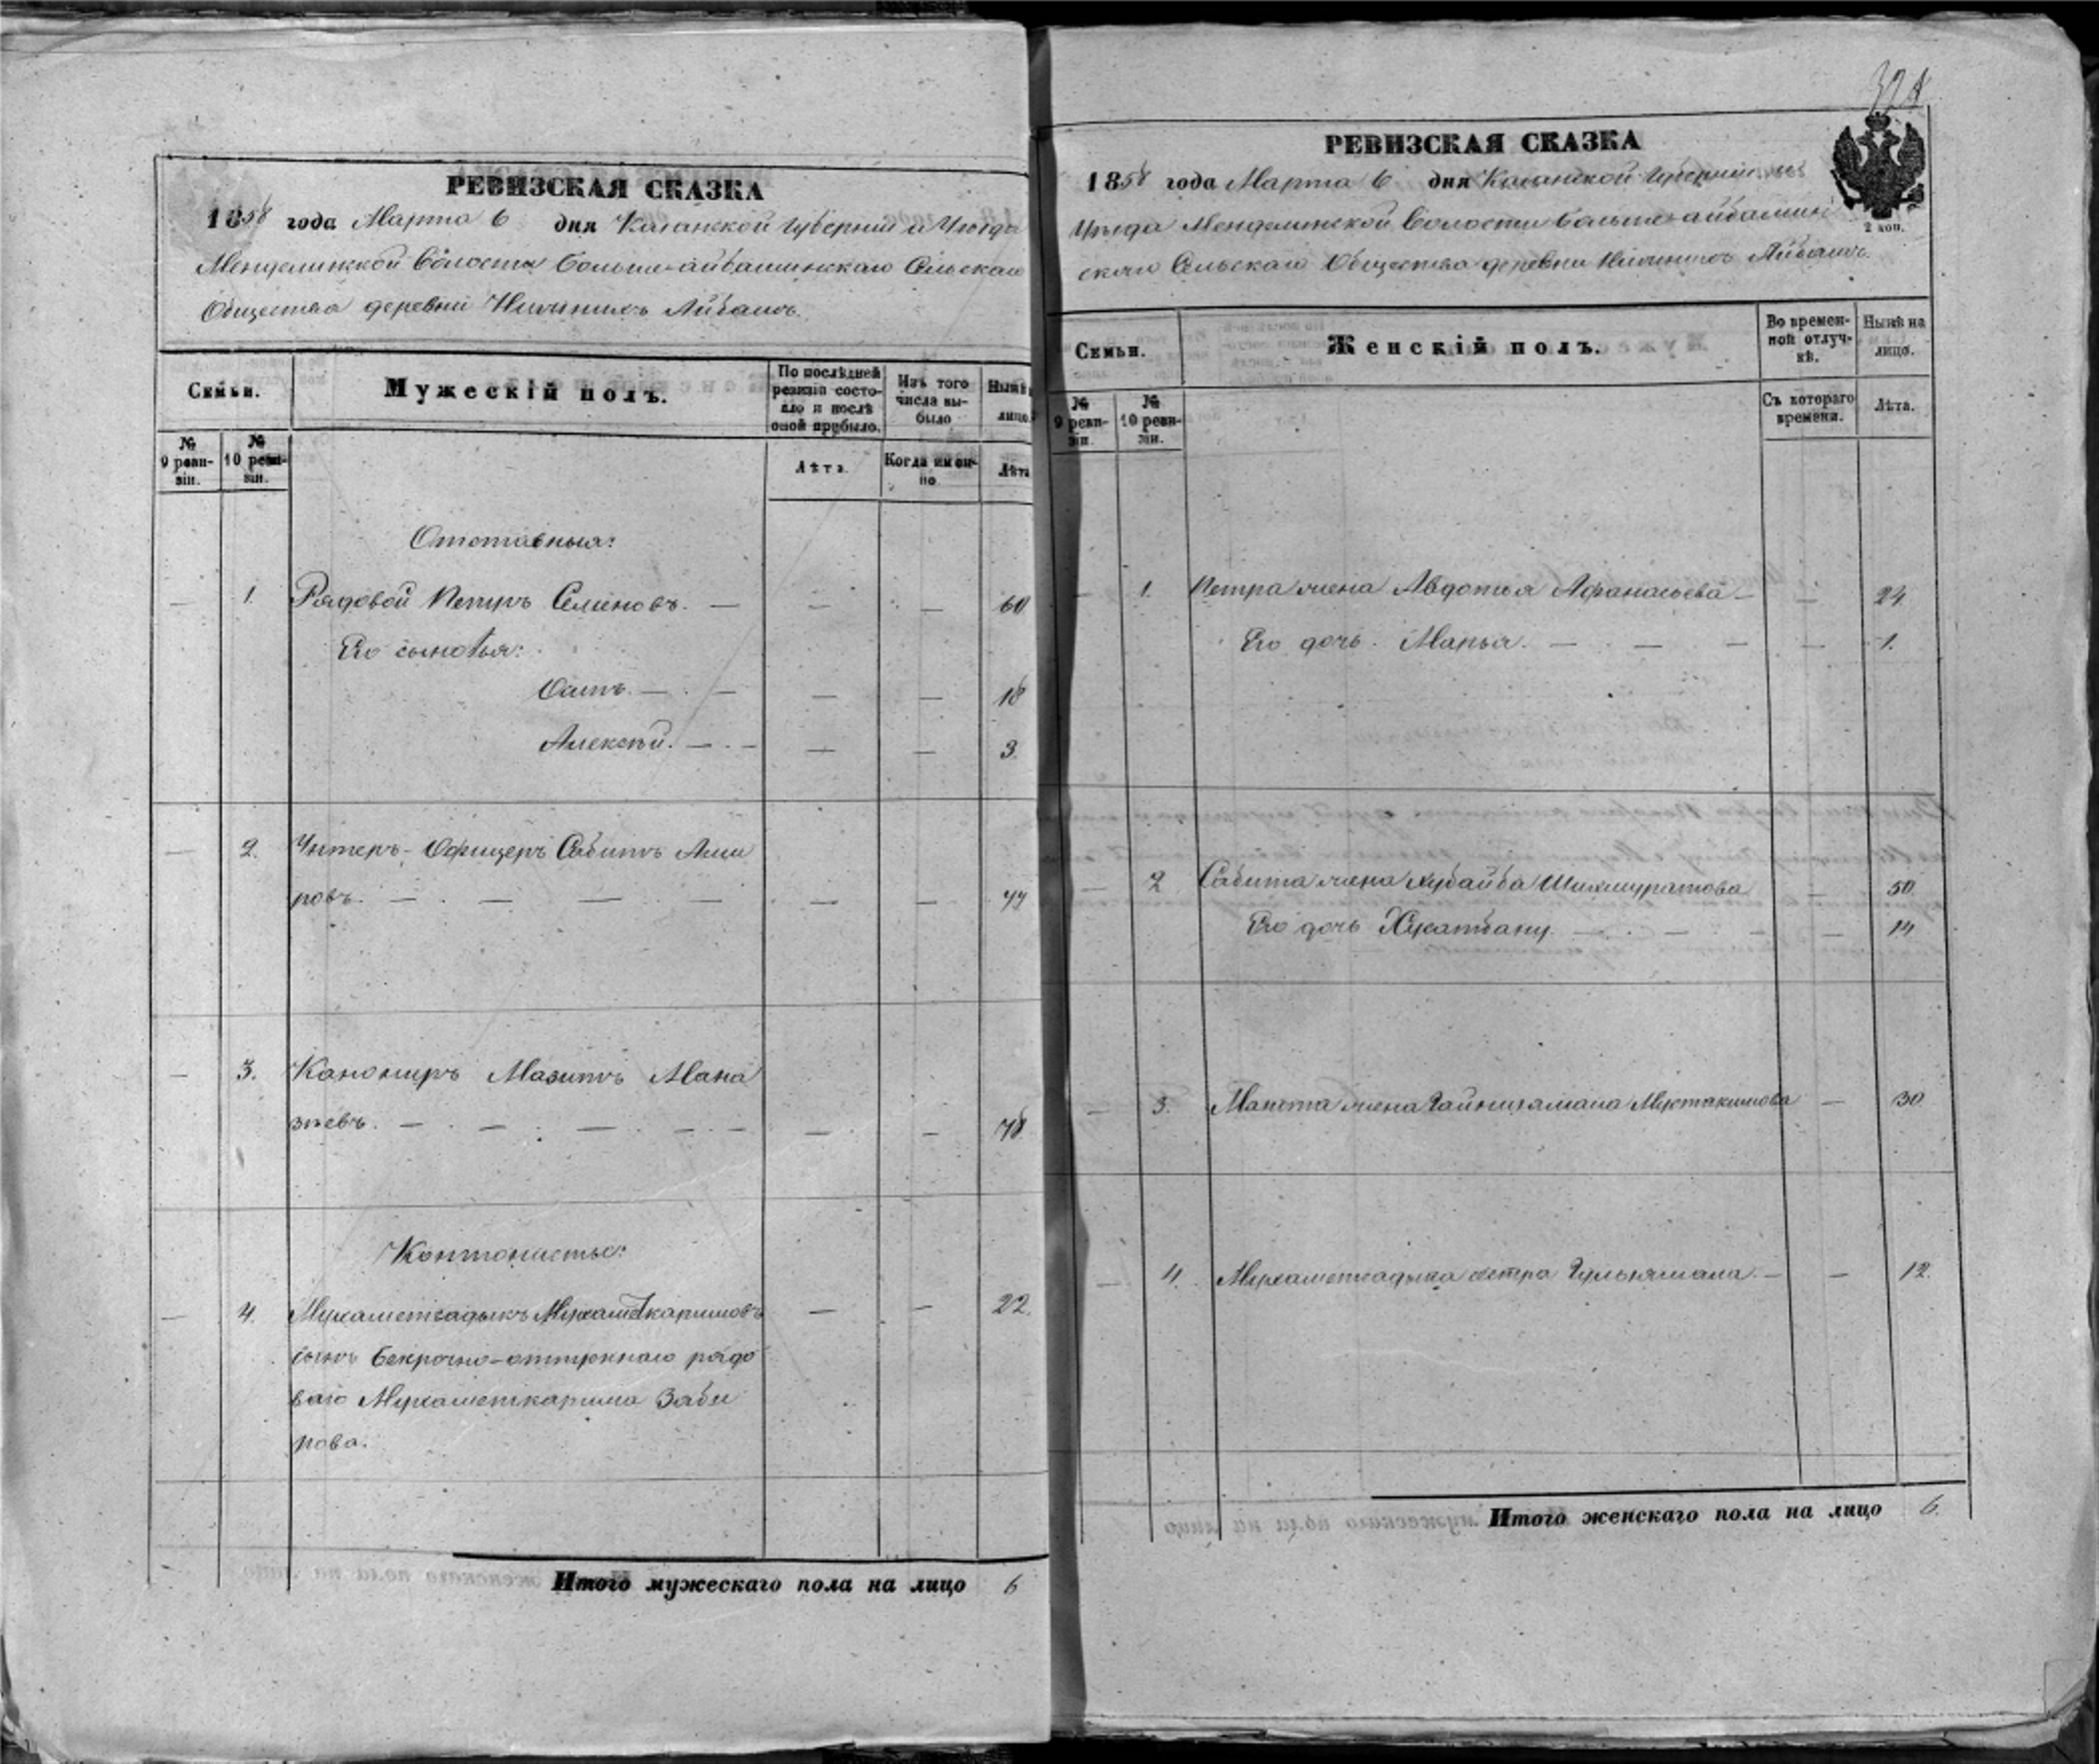 РЕВИЗСКАЯ СКАЗКА
1858 года Марта 6 дня Казанской Губерніи и Уѣзда
Менделинской Волости Больше-айбашинскаго Сельскаго
Общества деревни Нижнихъ Айбашъ.
Семьи.
Мужескій полъ.
По послѣдней ревизіи состояло и послѣ оной прибыло.
Изъ того числа выбыло
Нынѣ лицо
№ 9 ревизіи.
№ 10 ревизіи.
Лѣта.
Когда именно
Лѣта
Отставныя:
— 1. Рядовой Петръ Семеновъ. — — — 60
Его сыновья:
Осипъ. — — — — 18
Алексѣй. — — — — 3.
— 2. Унтеръ-Офицеръ Сабитъ Ами
ровъ. — — — — — — 44
— 3. Канониръ Мазитъ Мана
зѣевъ. — — — — — — 48
Кантонисты:
— 4. Мухаметсадыкъ Мухаметкаримовъ — — 22.
сынъ безсрочно-отпускнаго рядо
ваго Мухаметкарима Заби
рова.
Итого мужескаго пола на лицо 6
324
РЕВИЗСКАЯ СКАЗКА
1858 года Марта 6 дня Казанской Губерніи
Уѣзда Менделинской Волости Больше-айбашин
скаго Сельскаго Общества деревни Нижнихъ Айбашъ.
2 коп.
Семьи.
Женскій полъ.
Во временной отлучкѣ.
Нынѣ на лицо.
№ 9 ревизіи.
№ 10 ревизіи.
Съ котораго времени.
Лѣта.
— 1. Петра жена Авдотья Афанасьева — — 24
Его дочь Марья. — — — — 1.
— 2 Сабита жена Хубайба Шихмуратова — 50
Его дочь Хукатбану — — — — 14
— 3. Мазита жена Гайнизямала Мустакимова — 30
— 4. Мухаметсадыка сестра Гульзямала. — — 12.
Итого женскаго пола на лицо 6.